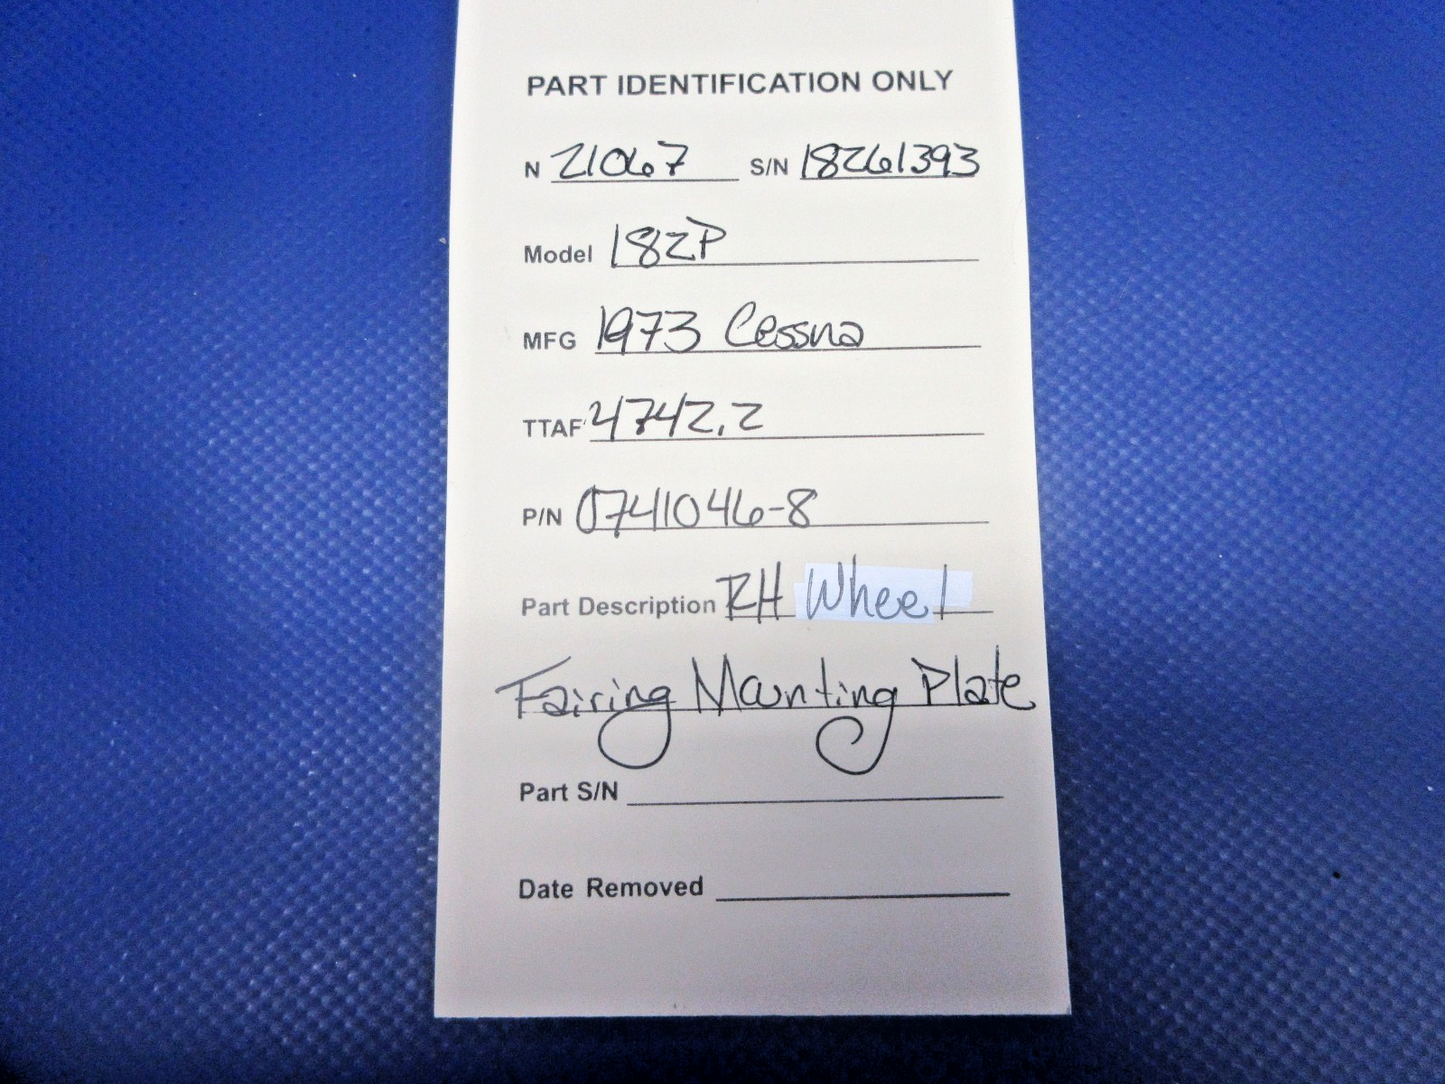 PART IDENTIFICATION ONLY
N 21067 S/N 18261393
Model 182P
MFG 1973 Cessna
TTAF 4742.2
P/N 0741046-8
Part Description RH Wheel
Fairing Mounting Plate
Part S/N
Date Removed